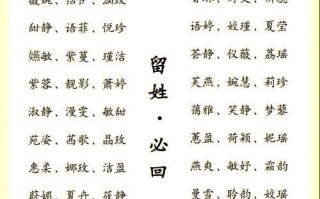 甜静、语菲、悦珍
嬿敏、紫蔓、瑾洁
紫蓉、靓影、萧婷
淑静、漫雯、敏甜
苑姿、茜歌、晶玫
惠柔、娜玫、洁盈
留姓·必回
语婷、姣瑾、夏莹
荟静、仪薇、荔瑶
芙燕、婉慧、莉珍
蔼雅、笑静、梦藜
蕙盈、荷颖、妮瑶
燕爽、敏妤、霜韵
曼雪、聆韵、姣瑶